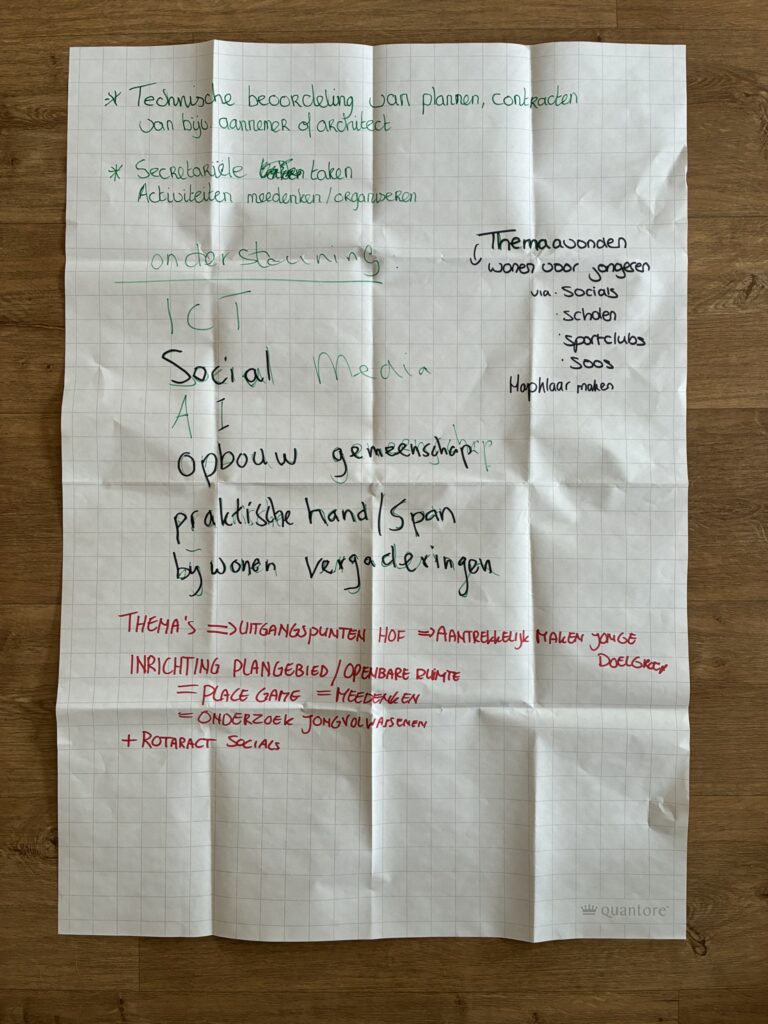 * Technische beoordeling van plannen, contracten
van bijv aannemer of architect
* Secretariële taken
Activiteiten meedenken/organiseren
ondersteuning.
ICT
Social Media
AI
opbouw gemeenschap
praktische hand/span
bijwonen vergaderingen
Thema avonden
wonen voor jongeren
via · Socials
· Scholen
· Sportclubs
· Soos
Haphlaar maken
THEMA'S => UITGANGSPUNTEN HOF => AANTREKKELIJK MAKEN JONGE
DOELGROEP
INRICHTING PLANGEBIED/OPENBARE RUIMTE
= PLACE GAME = MEEDENKEN
= ONDERZOEK JONGVOLWASSENEN
+ ROTARACT SOCIALS
quantore